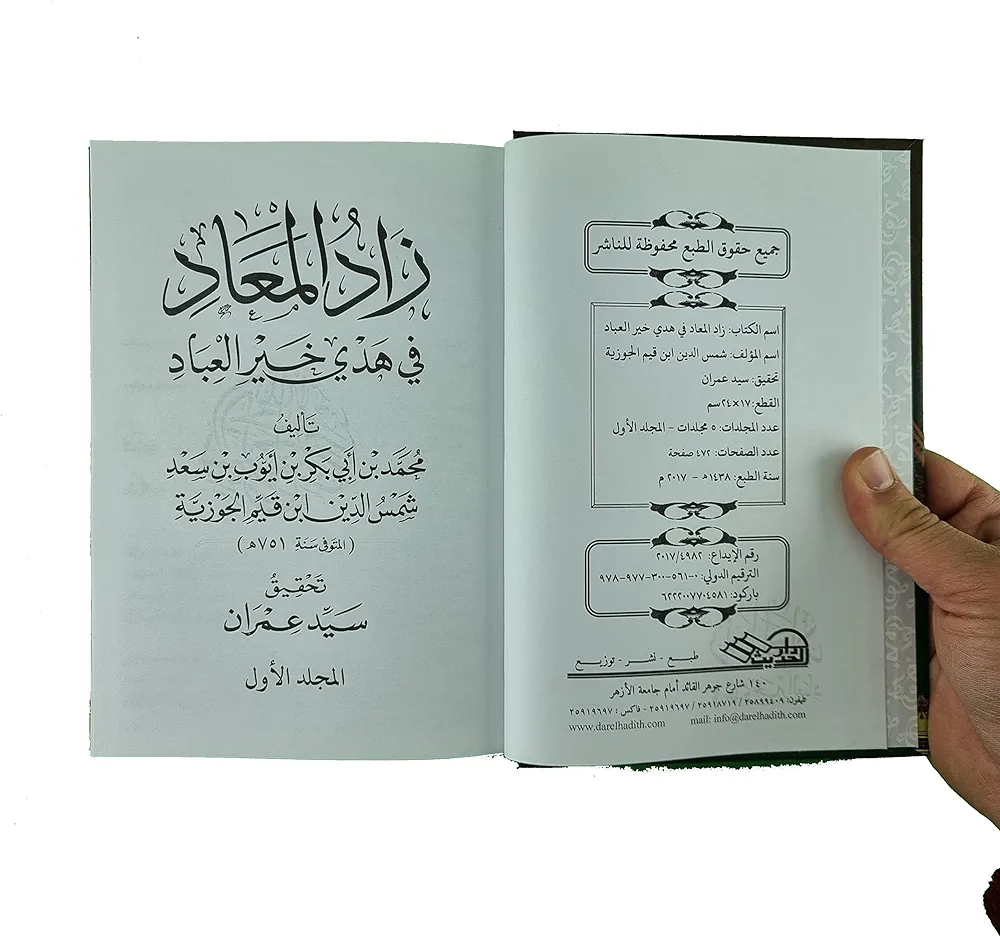 زَادُ المَعَادِ
في هَدْيِ خَيْرِ العِبَادِ
تَأليفُ
مُحَمَّد بن أبي بَكْر بن أيّوُب بن سَعد
شَمْسُ الدِّيْن ابْن قَيِّم الجَوْزِيَّة
(المتوفى سَنَة ٧٥١ هـ)
تَحْقِيقُ
سَيِّد عِمْرَان
المجلد الأول
جميع حقوق الطبع محفوظة للناشر
اسم الكتاب: زاد المعاد في هدي خير العباد
اسم المؤلف: شمس الدين ابن قيم الجوزية
تحقيق: سيد عمران
القطع: ١٧×٢٤سم
عدد المجلدات: ٥ مجلدات - المجلد الأول
عدد الصفحات: ٤٧٢ صفحة
سنة الطبع: ١٤٣٨هـ - ٢٠١٧ م
رقم الإيداع: ٢٠١٧/٤٩٨٢
الترقيم الدولي: ٠-٥٦١-٣٠٠-٩٧٧-٩٧٨
باركود: ٦٢٢٢٠٠٧٧٠٤٥٨١
دار الحديث
طبع - نشر - توزيع
١٤٠ شارع جوهر القائد أمام جامعة الأزهر
تليفون: ٢٥٨٩٩٤٠٩ / ٢٥٩١٨٧١٩ / ٢٥٩١٩٦٩٧ - فاكس: ٢٥٩١٩٦٩٧
www.darelhadith.com mail: info@darelhadith.com